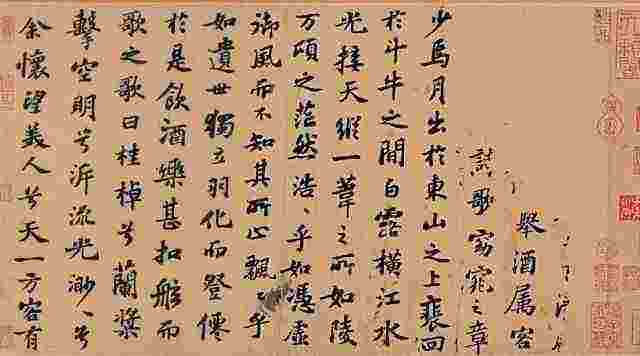 舉酒属客
詩歌窈窕之章
少焉月出於東山之上裵回
於斗牛之間白露横江水
光接天縱一葦之所如陵
万頃之茫然浩〻乎如馮虚
御風而不知其所止飄〻乎
如遺世獨立羽化而登僊
於是飲酒樂甚扣舷而
歌之歌曰桂棹兮蘭槳
擊空明兮泝流光渺〻兮
余懷望美人兮天一方客有